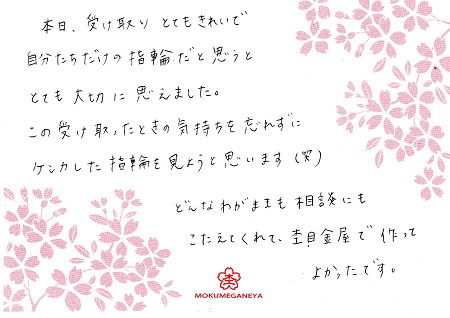 本日、受け取り とてもきれいで
自分たちだけの指輪だと思うと
とても大切に思えました。
この受け取ったときの気持ちを忘れずに
ケンカした指輪を見ようと思います(笑)
どんなわがままも相談にも
こたえてくれて、杢目金屋で作って
よかったです。
MOKUMEGANEYA